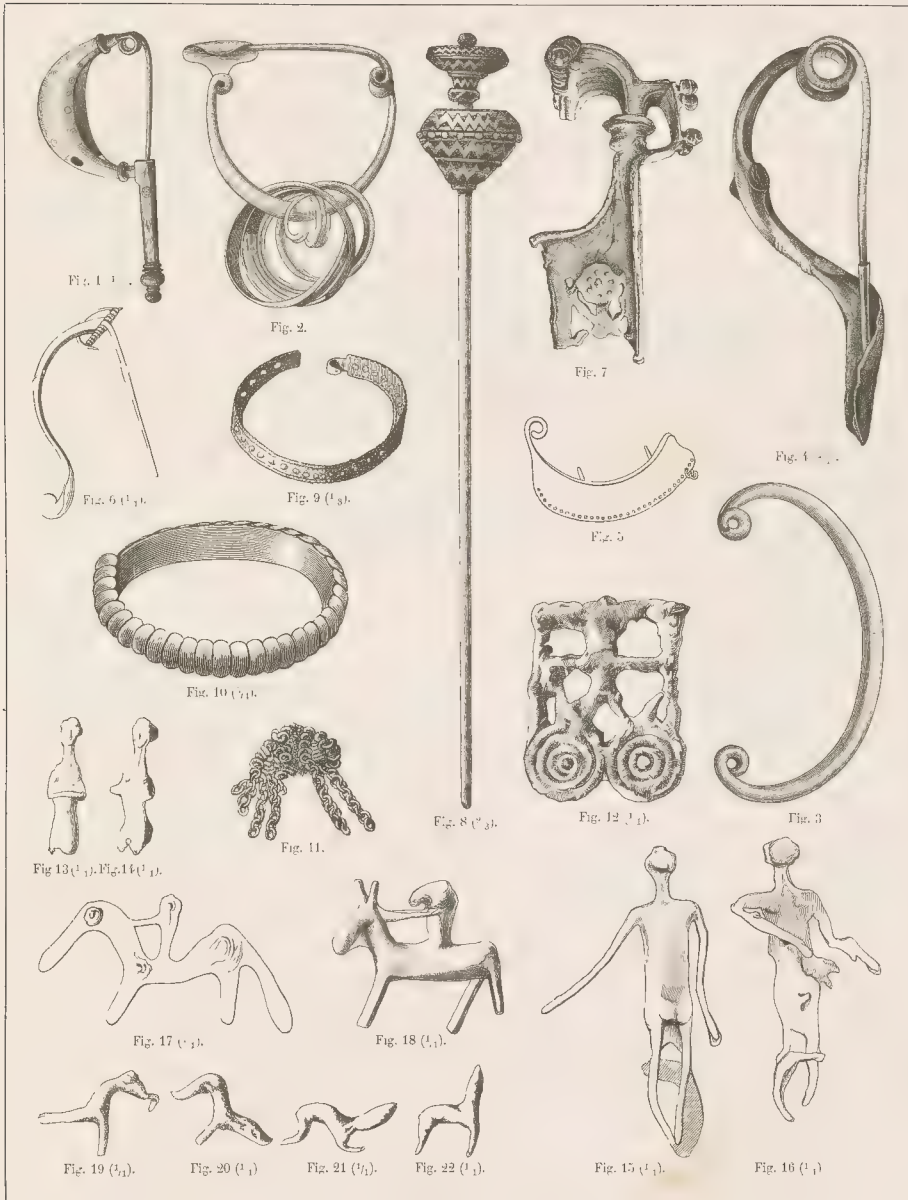 Fig. 1
Fig. 2.
Fig. 7
Fig. 4
Fig. 6 (1/1).
Fig. 9 (1/3).
Fig. 5
Fig. 10
Fig. 13 (1/1). Fig. 14 (1/1).
Fig. 11.
Fig. 8 (2/3).
Fig. 12 (1/1).
Fig. 3
Fig. 17
Fig. 18 (1/1).
Fig. 19 (1/1).
Fig. 20 (1/1)
Fig. 21 (1/1)
Fig. 22 (1/1).
Fig. 15 (1/1).
Fig. 16 (1/1)